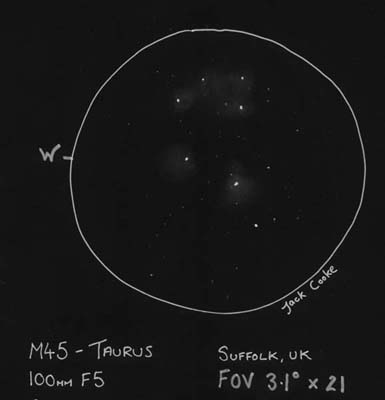 W
Jack Cooke
M45 - TAURUS
100mm F5
SUFFOLK, UK
FOV 3.1° x 21